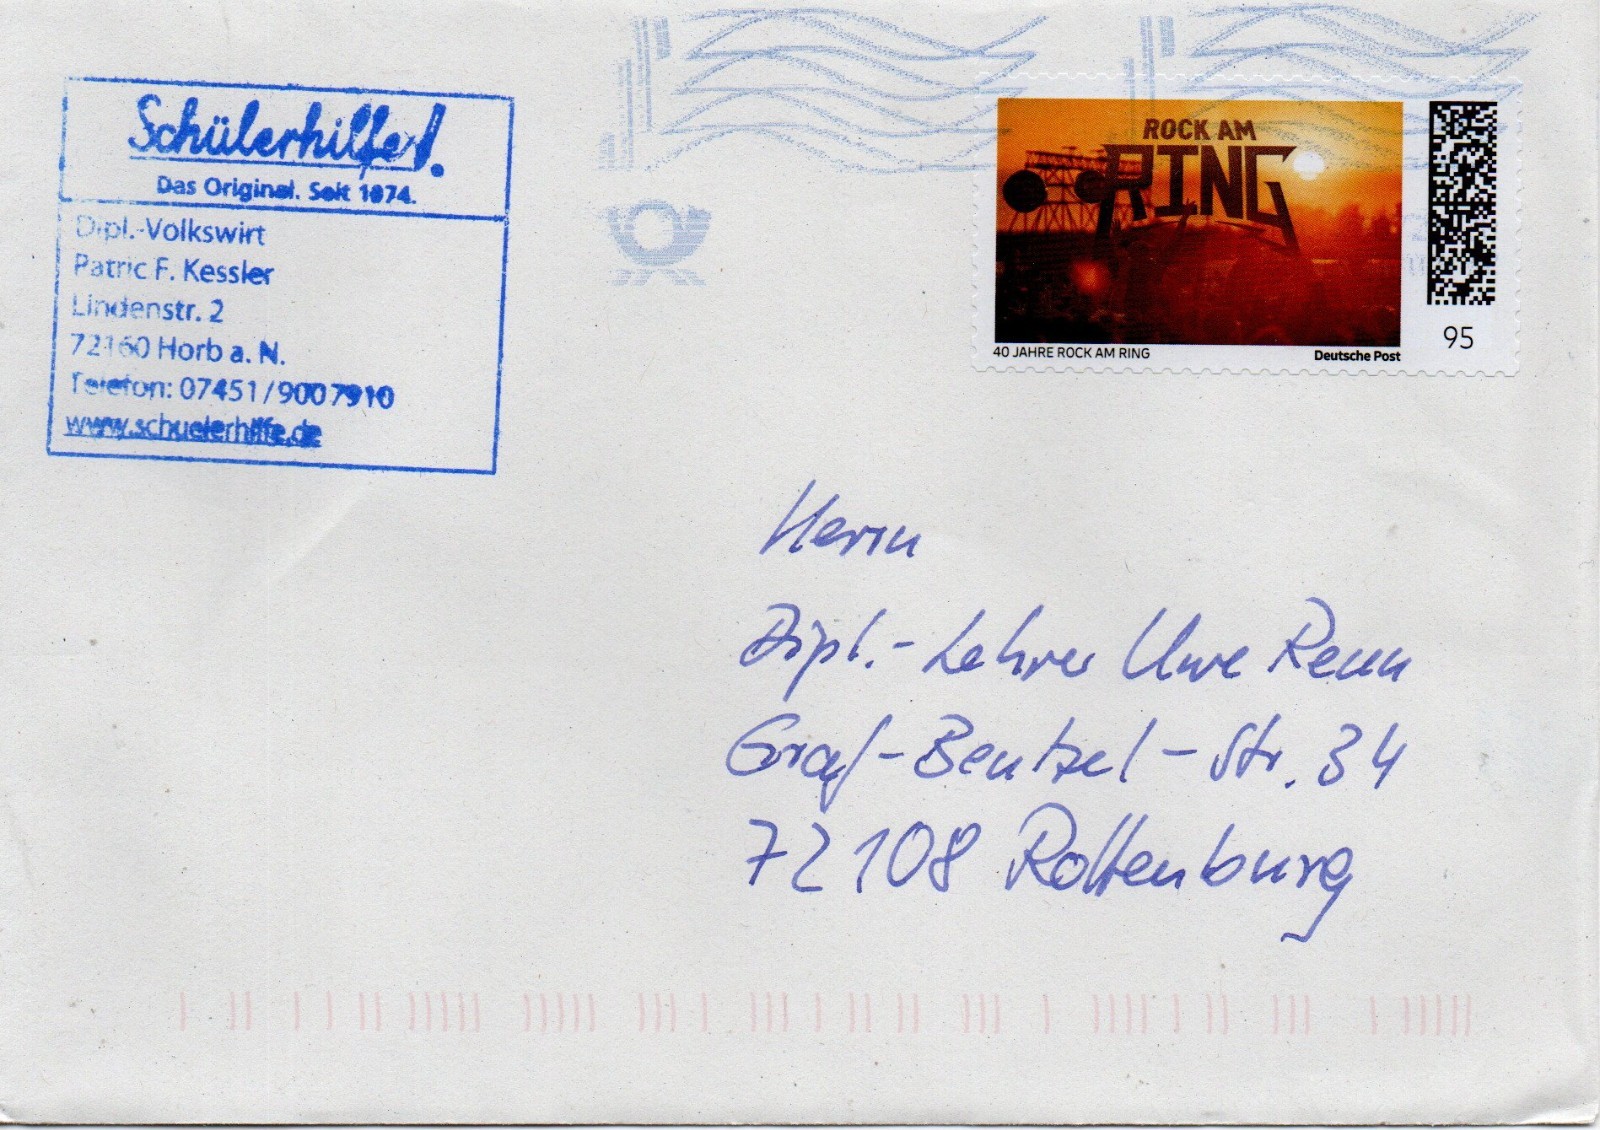 Schülerhilfe!
Das Original. Seit 1974.
Dipl.-Volkswirt
Patric F. Kessler
Lindenstr. 2
72160 Horb a. N.
Telefon: 07451/9007910
www.schuelerhilfe.de
ROCK AM
RING
40 JAHRE ROCK AM RING
Deutsche Post
95
Herrn
Dipl.-Lehrer Uwe Renn
Graf-Bentzel-Str. 34
72108 Rottenburg